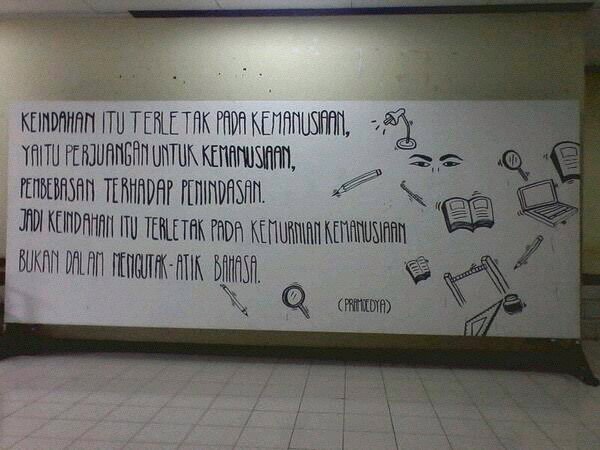 KEINDAHAN ITU TERLETAK PADA KEMANUSIAAN,
YAITU PERJUANGAN UNTUK KEMANUSIAAN,
PEMBEBASAN TERHADAP PENINDASAN.
JADI KEINDAHAN ITU TERLETAK PADA KEMURNIAN KEMANUSIAAN
BUKAN DALAM MENGUTAK-ATIK BAHASA.
(PRAMOEDYA)